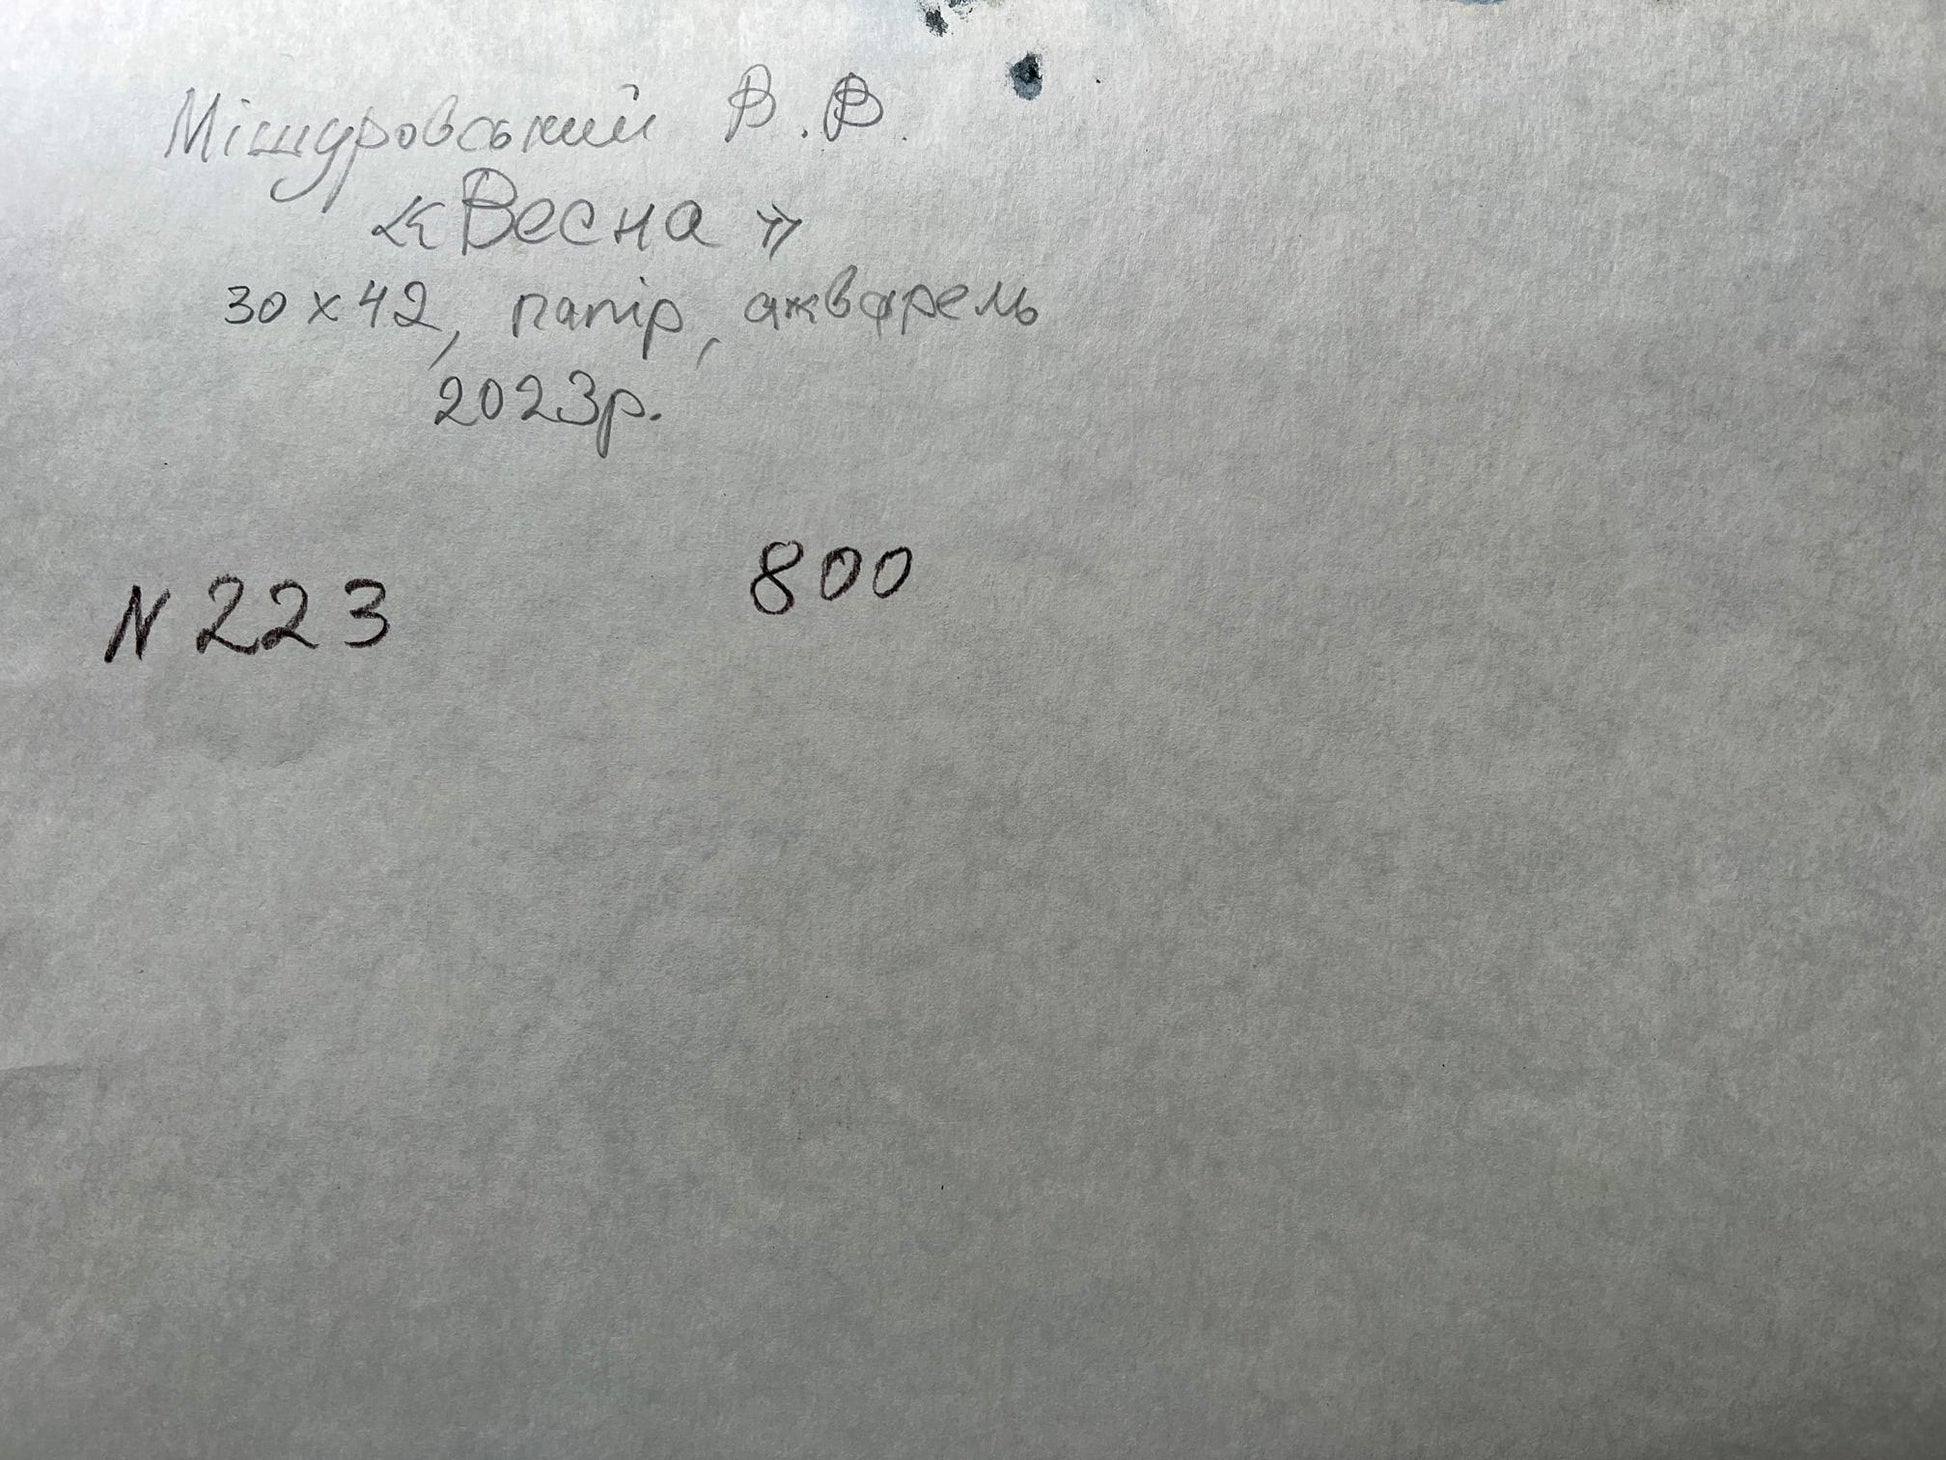 Мішуровський В.В.
«Весна»
30х42, папір, акварель
2023р.
N 223 800